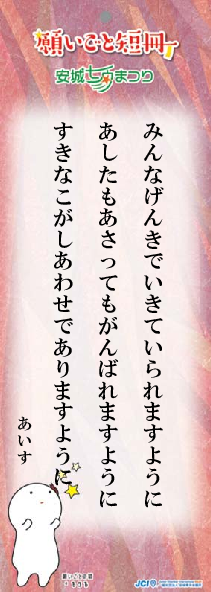 願いごと短冊
安城七夕まつり
みんなげんきでいきていられますように
あしたもあさってもがんばれますように
すきなこがしあわせでありますように
あいす
願いごと短冊
JCI